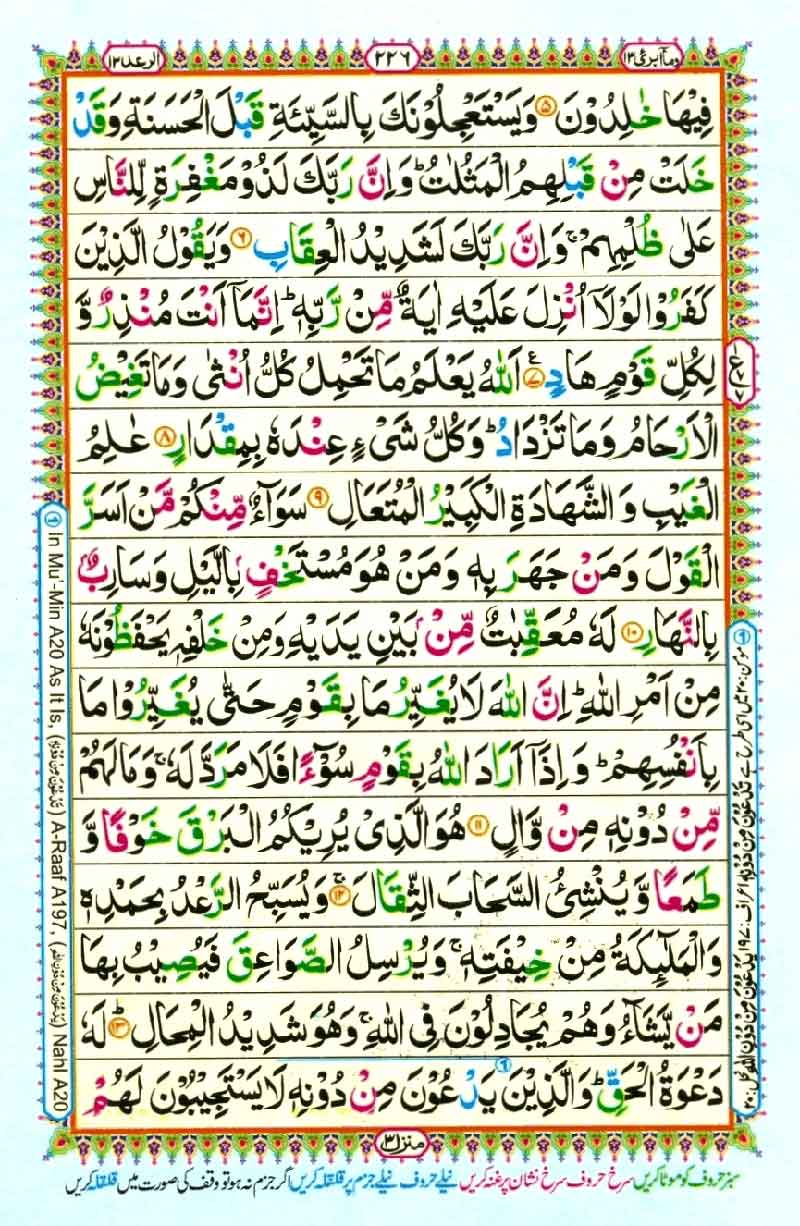 وما ابرئ ١٣
٢٢٦
الرعد ١٣
فِيْهَا خٰلِدُوْنَ ۝٥ وَيَسْتَعْجِلُوْنَكَ بِالسَّيِّئَةِ قَبْلَ الْحَسَنَةِ وَقَدْ
خَلَتْ مِنْ قَبْلِهِمُ الْمَثُلٰتُ ؕ وَاِنَّ رَبَّكَ لَذُوْ مَغْفِرَةٍ لِّلنَّاسِ
عَلٰى ظُلْمِهِمْ ۚ وَاِنَّ رَبَّكَ لَشَدِيْدُ الْعِقَابِ ۝٦ وَيَقُوْلُ الَّذِيْنَ
كَفَرُوْا لَوْلَاۤ اُنْزِلَ عَلَيْهِ اٰيَةٌ مِّنْ رَّبِّهٖ ؕ اِنَّمَاۤ اَنْتَ مُنْذِرٌ وَّ
لِكُلِّ قَوْمٍ هَادٍ ۝٧ اَللّٰهُ يَعْلَمُ مَا تَحْمِلُ كُلُّ اُنْثٰى وَمَا تَغِيْضُ
الْاَرْحَامُ وَمَا تَزْدَادُ ؕ وَكُلُّ شَىْءٍ عِنْدَهٗ بِمِقْدَارٍ ۝٨ عٰلِمُ
الْغَيْبِ وَالشَّهَادَةِ الْكَبِيْرُ الْمُتَعَالِ ۝٩ سَوَآءٌ مِّنْكُمْ مَّنْ اَسَرَّ
الْقَوْلَ وَمَنْ جَهَرَ بِهٖ وَمَنْ هُوَ مُسْتَخْفٍۭ بِالَّيْلِ وَسَارِبٌۢ
بِالنَّهَارِ ۝١٠ لَهٗ مُعَقِّبٰتٌ مِّنْۢ بَيْنِ يَدَيْهِ وَمِنْ خَلْفِهٖ يَحْفَظُوْنَهٗ
مِنْ اَمْرِ اللّٰهِ ؕ اِنَّ اللّٰهَ لَا يُغَيِّرُ مَا بِقَوْمٍ حَتّٰى يُغَيِّرُوْا مَا
بِاَنْفُسِهِمْ ؕ وَاِذَاۤ اَرَادَ اللّٰهُ بِقَوْمٍ سُوْٓءًا فَلَا مَرَدَّ لَهٗ ۚ وَمَا لَهُمْ
مِّنْ دُوْنِهٖ مِنْ وَّالٍ ۝١١ هُوَ الَّذِىْ يُرِيْكُمُ الْبَرْقَ خَوْفًا وَّ
طَمَعًا وَّيُنْشِئُ السَّحَابَ الثِّقَالَ ۝١٢ وَيُسَبِّحُ الرَّعْدُ بِحَمْدِهٖ
وَالْمَلٰٓئِكَةُ مِنْ خِيْفَتِهٖ ۚ وَيُرْسِلُ الصَّوَاعِقَ فَيُصِيْبُ بِهَا
مَنْ يَّشَآءُ وَهُمْ يُجَادِلُوْنَ فِى اللّٰهِ ۚ وَهُوَ شَدِيْدُ الْمِحَالِ ۝١٣ لَهٗ
دَعْوَةُ الْحَقِّ ؕ وَالَّذِيْنَ يَدْعُوْنَ مِنْ دُوْنِهٖ لَا يَسْتَجِيْبُوْنَ لَهُمْ
منزل ٣
سبز حروف کو موٹا کریں سرخ حروف سرخ نشان پر غنہ کریں نیلے حروف نیلے جزم پر قلقلہ کریں اگر جزم نہ ہو تو وقف کی صورت میں قلقلہ کریں
In Mu'-Min A20 As It Is, A-Raaf A197, Nahl A20